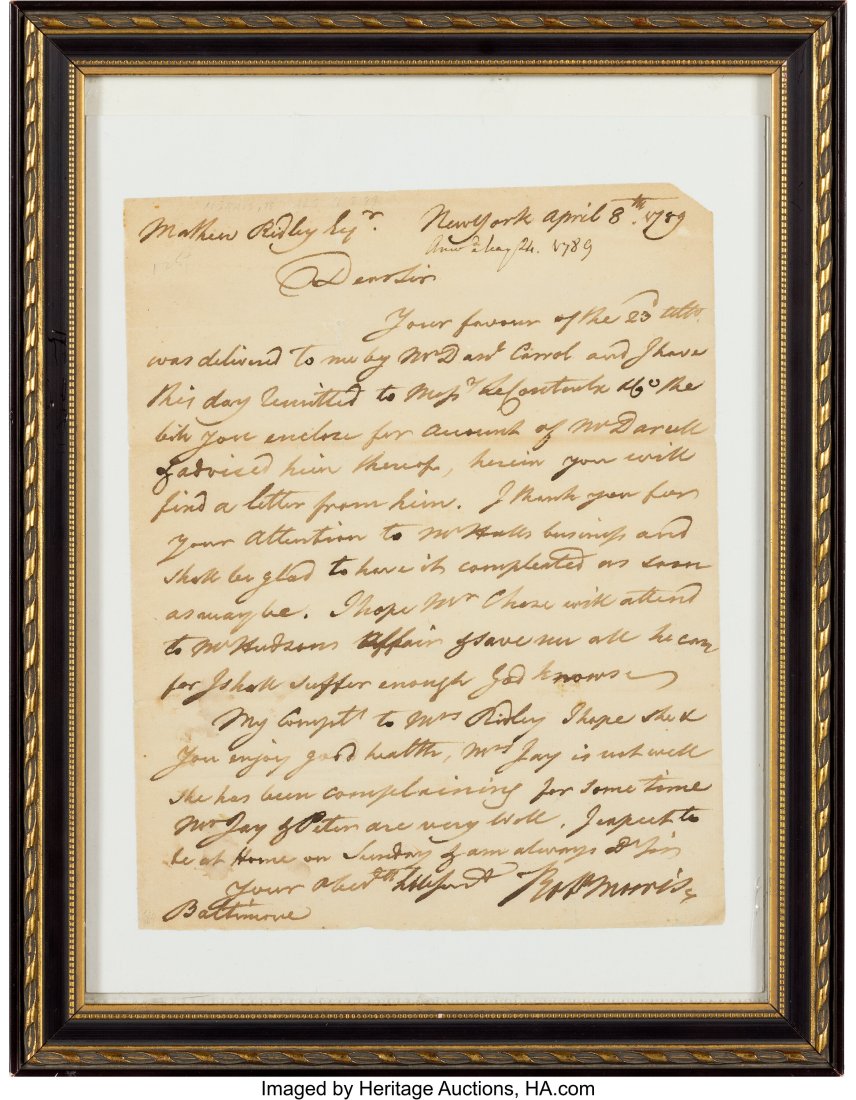 Mathew Ridley Esqr. New York April 8th. 1789
Answd May 24. 1789
Dear Sir
Your favour of the 23d ulto.
was delivered to me by Mr Danl Carrol and I have
this day remitted to Messrs LeCouteulx & Co the
bill you enclose for account of Mr Darcel
& advised him thereof, herein you will
find a letter from him. I thank you for
your attention to Mr Halls business and
shall be glad to have it compleated as soon
as may be. I hope Mr Chase will attend
to Mr Hudsons affair & save me all he can
for I shall suffer enough God knows
My Complts to Mrs Ridley I hope she &
You enjoy good health, Mrs Jay is not well
she has been complaining for some time
Mr Jay & Peter are very well. I expect to
be at Home on Sunday & am always Dr Sir
Your Obedt hble servt Robt Morris
Baltimore
Imaged by Heritage Auctions, HA.com